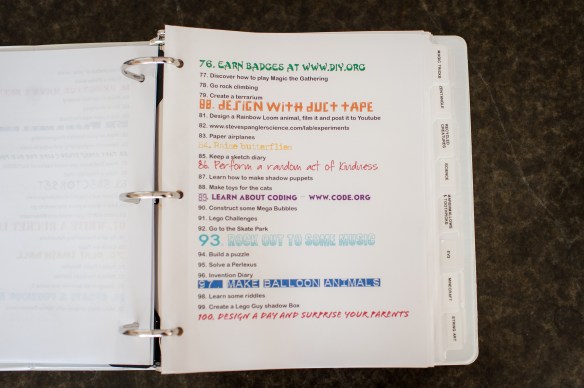 76. EARN BADGES AT WWW.DIY.ORG
77. Discover how to play Magic the Gathering
78. Go rock climbing
79. Create a terrarium
80. DESIGN WITH DUCT TAPE
81. Design a Rainbow Loom animal, film it and post it to Youtube
82. www.stevespanglerscience.com/lab/experiments
83. Paper airplanes
84. Raise butterflies
85. Keep a sketch diary
86. Perform a random act of kindness
87. Learn how to make shadow puppets
88. Make toys for the cats
89. LEARN ABOUT CODING - WWW.CODE.ORG
90. Construct some Mega Bubbles
91. Lego Challenges
92. Go to the Skate Park
93. ROCK OUT TO SOME MUSIC
94. Build a puzzle
95. Solve a Perlexus
96. Invention Diary
97. MAKE BALLOON ANIMALS
98. Learn some riddles
99. Create a Lego Guy shadow Box
100. DESIGN A DAY AND SURPRISE YOUR PARENTS
MAGIC TRICKS
ZENTANGLE
RECYCLED CREATURES
SCIENCE
MARSHMALLOWS & TOOTHPICKS
MINECRAFT
STRING ART